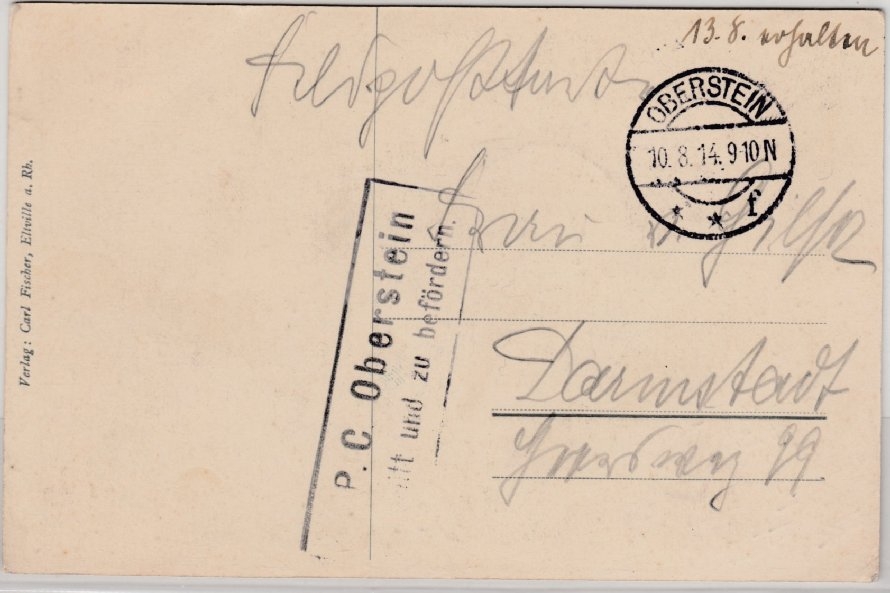 13. 8. erhalten
Feldpostkarte
OBERSTEIN
10. 8. 14. 9-10 N
* * f
Frau
Darmstadt
99
P. C Oberstein
und zu befördern.
Verlag: Carl Fischer, Eltville a. Rh.